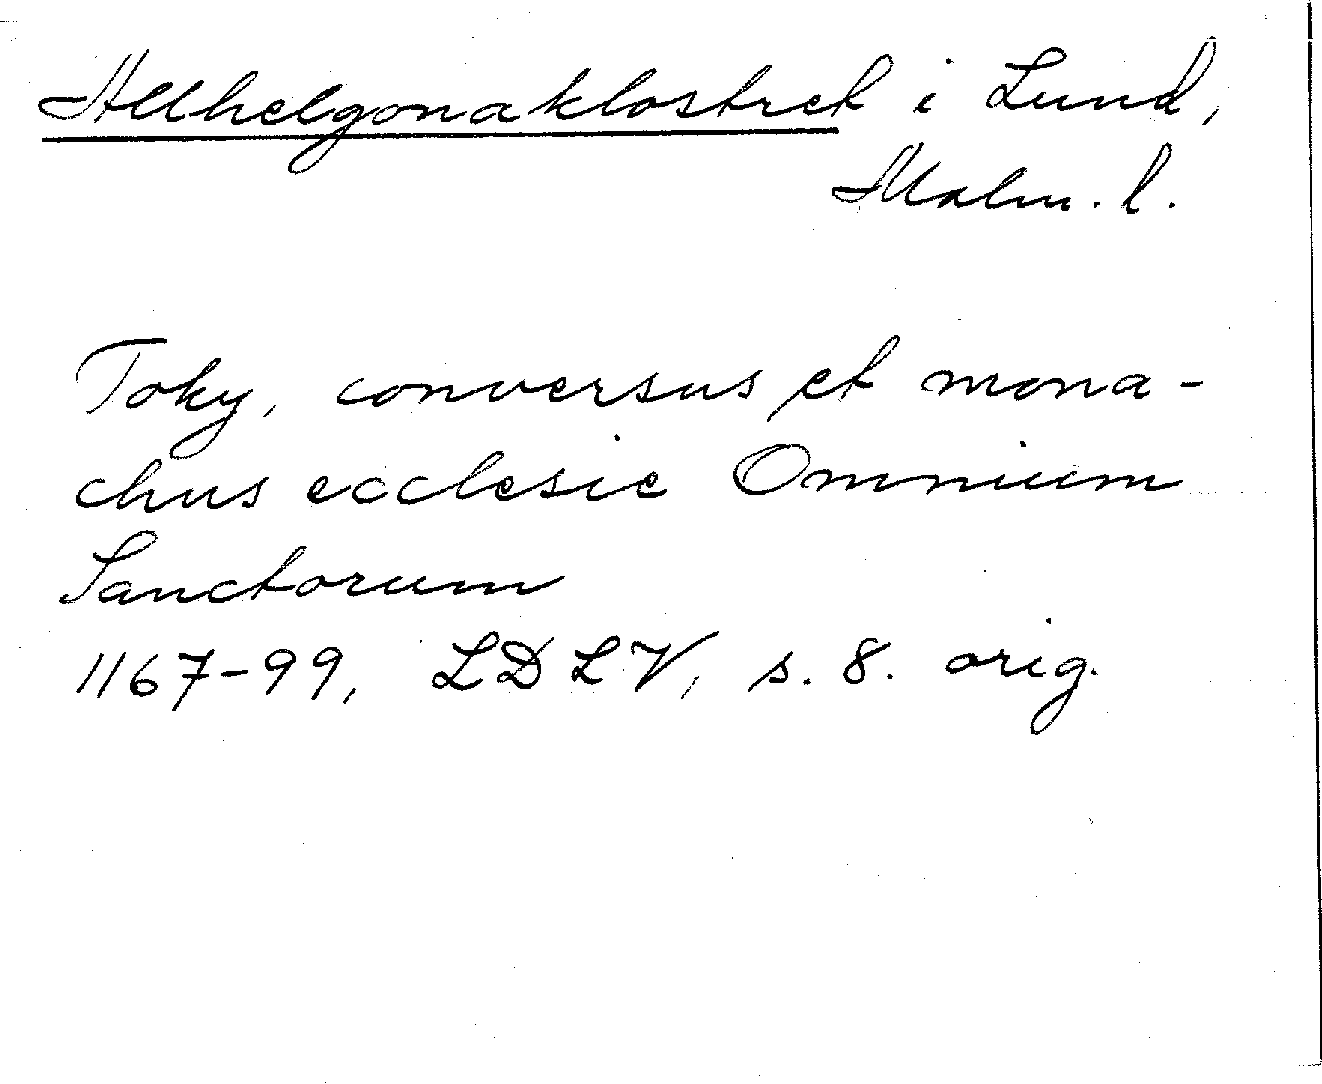 Allhelgonaklostret i Lund,
Malm. l.
Toky, conversus et mona-
chus ecclesie Omnium
Sanctorum
1167-99, LDLV, s. 8. orig.